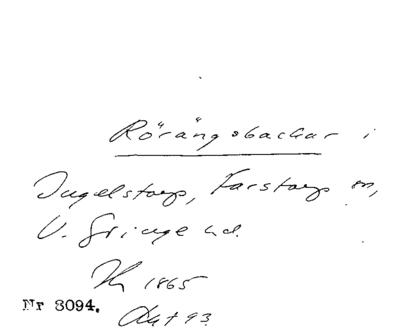 Rörängsbackar i
Ingelstorp, Farstorp sn,
V. Göinge hd.
1865
Nr 3094.